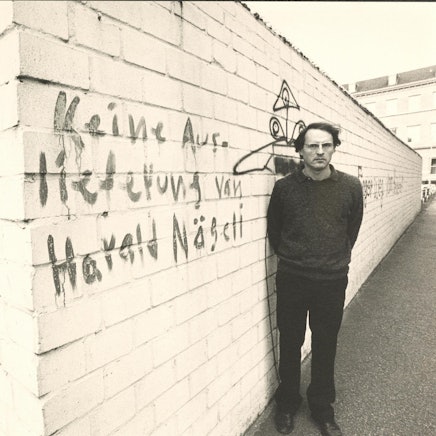 Keine Aus-
lieferung van
Harald Nägeli